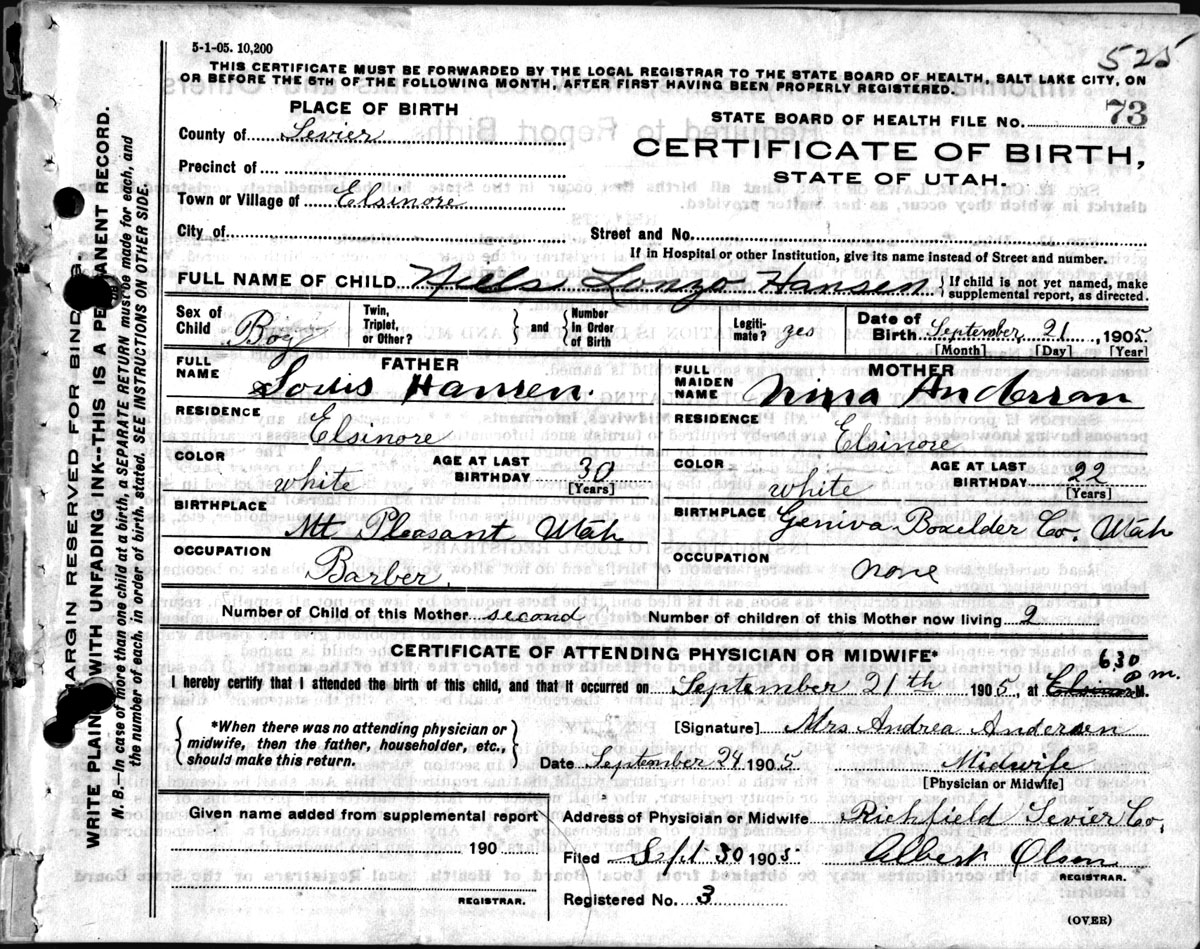 5-1-05. 10,200
525
THIS CERTIFICATE MUST BE FORWARDED BY THE LOCAL REGISTRAR TO THE STATE BOARD OF HEALTH, SALT LAKE CITY, ON
OR BEFORE THE 5TH OF THE FOLLOWING MONTH, AFTER FIRST HAVING BEEN PROPERLY REGISTERED.
PLACE OF BIRTH
STATE BOARD OF HEALTH FILE NO. 73
County of Sevier
CERTIFICATE OF BIRTH,
Precinct of
STATE OF UTAH.
Town or Village of Elsinore
City of
Street and No.
If in Hospital or other Institution, give its name instead of Street and number.
FULL NAME OF CHILD Niels Lonzo Hansen } If child is not yet named, make
supplemental report, as directed.
Sex of
Child Boy
Twin,
Triplet,
or Other?
} and {
Number
In Order
of Birth
Legiti-
mate? yes
Date of
Birth September 21, 1905
[Month] [Day] [Year]
FATHER
FULL
NAME Louis Hansen.
MOTHER
FULL
MAIDEN
NAME Nina Anderson
RESIDENCE
Elsinore
RESIDENCE
Elsinore
COLOR
white
AGE AT LAST
BIRTHDAY 30
[Years]
COLOR
white
AGE AT LAST
BIRTHDAY 22
[Years]
BIRTHPLACE
Mt Pleasant Utah
BIRTHPLACE
Geniva Boxelder Co. Utah
OCCUPATION
Barber.
OCCUPATION
none
Number of Child of this Mother second
Number of children of this Mother now living 2
CERTIFICATE OF ATTENDING PHYSICIAN OR MIDWIFE*
630
I hereby certify that I attended the birth of this child, and that it occurred on September 21th 1905, at M. m.
{ *When there was no attending physician or
midwife, then the father, householder, etc.,
should make this return. }
[Signature] Mrs Andrea Andersen
Date September 24 1905
Midwife
[Physician or Midwife]
Given name added from supplemental report
190
REGISTRAR.
Address of Physician or Midwife Richfield Sevier Co,
Filed Sept 30 1905 Albert Olson
REGISTRAR.
Registered No. 3
(OVER)
MARGIN RESERVED FOR BINDING.
WRITE PLAINLY WITH UNFADING INK--THIS IS A PERMANENT RECORD.
N. B.—In case of more than one child at a birth, a SEPARATE RETURN must be made for each, and
the number of each, in order of birth, stated. SEE INSTRUCTIONS ON OTHER SIDE.